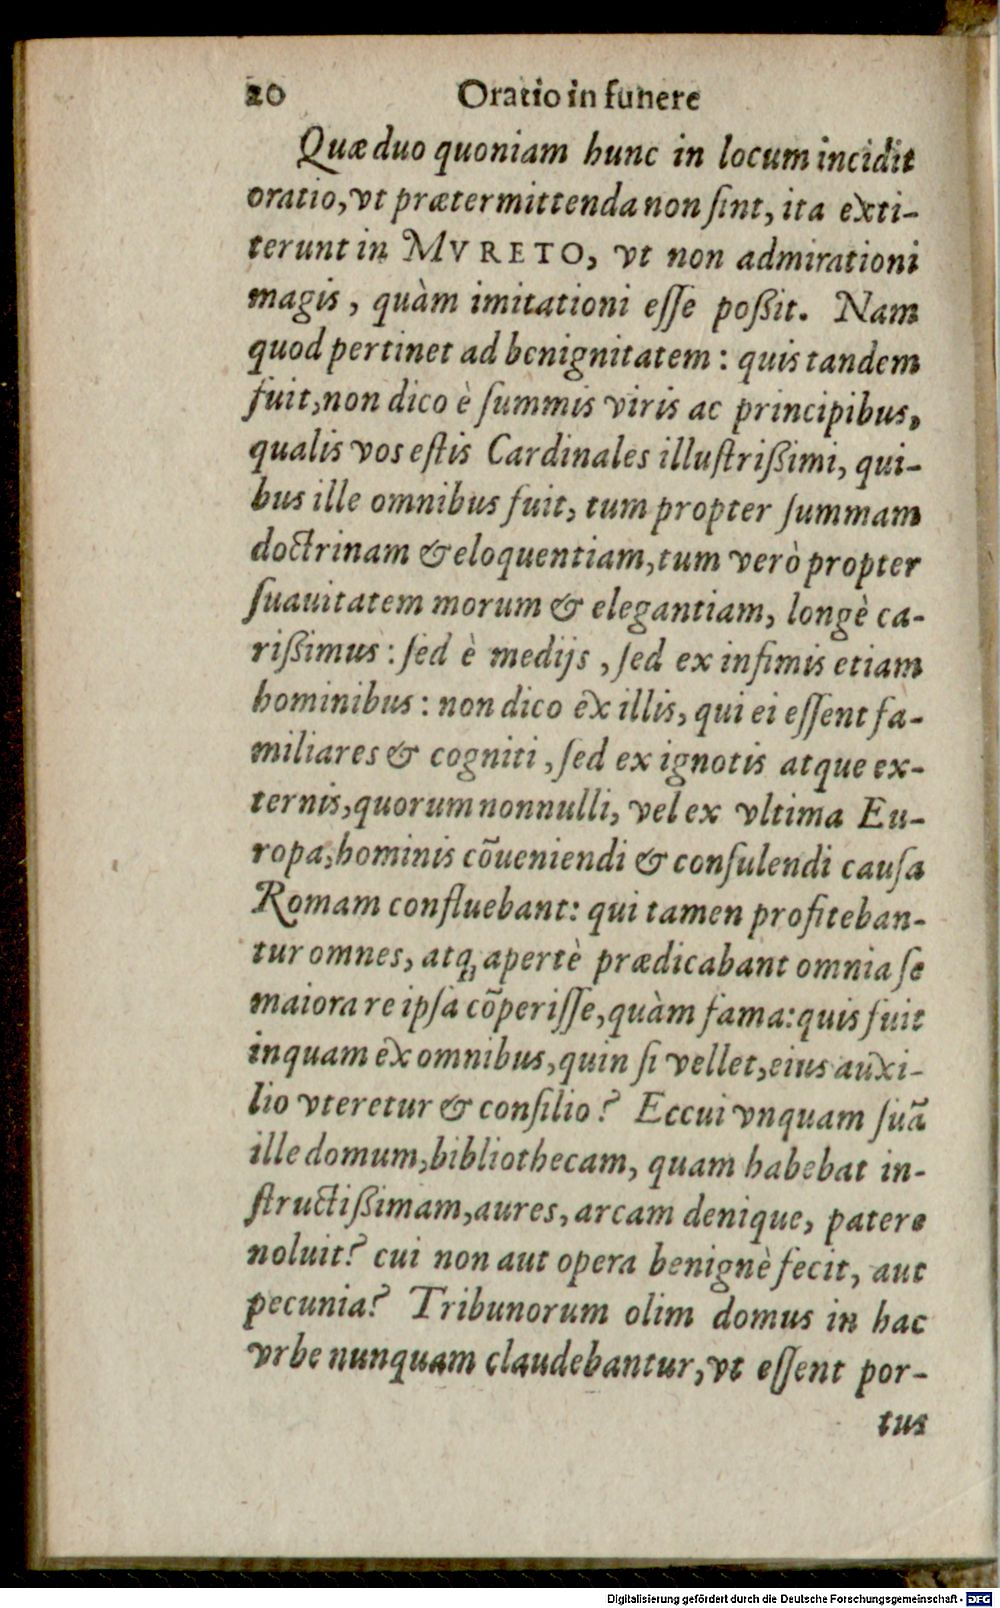 20 Oratio in funere
Quæ duo quoniam hunc in locum incidit
oratio, vt prætermittenda non ſint, ita exti-
terunt in MVRETO, vt non admirationi
magis, quàm imitationi eſſe poßit. Nam
quod pertinet ad benignitatem: quis tandem
fuit, non dico è ſummis viris ac principibus,
qualis vos eſtis Cardinales illuſtrißimi, qui-
bus ille omnibus fuit, tum propter ſummam
doctrinam & eloquentiam, tum verò propter
ſuauitatem morum & elegantiam, longè ca-
rißimus: ſed è medijs, ſed ex infimis etiam
hominibus: non dico ex illis, qui ei eſſent fa-
miliares & cogniti, ſed ex ignotis atque ex-
ternis, quorum nonnulli, vel ex vltima Eu-
ropa, hominis cõueniendi & conſulendi cauſa
Romam confluebant: qui tamen profiteban-
tur omnes, atq; apertè prædicabant omnia ſe
maiora re ipſa cõperiſſe, quàm fama: quis fuit
inquam ex omnibus, quin ſi vellet, eius auxi-
lio vteretur & conſilio? Eccui vnquam ſuã
ille domum, bibliothecam, quam habebat in-
ſtructißimam, aures, arcam denique, patere
noluit? cui non aut opera benignè fecit, aut
pecunia? Tribunorum olim domus in hac
vrbe nunquam claudebantur, vt eſſent por-
tus
Digitalisierung gefördert durch die Deutsche Forschungsgemeinschaft - DFG